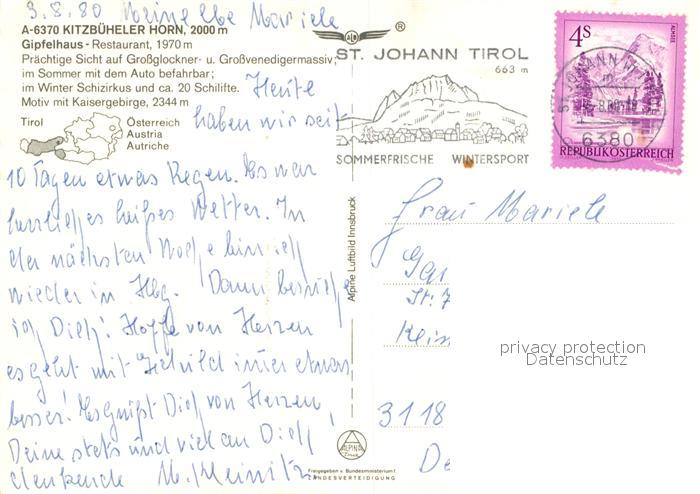 3.8.80 Meine lbe Mariele
A-6370 KITZBÜHELER HORN, 2000 m
Gipfelhaus - Restaurant, 1970 m
Prächtige Sicht auf Großglockner- u. Großvenedigermassiv;
im Sommer mit dem Auto befahrbar;
im Winter Schizirkus und ca. 20 Schilifte.
Motiv mit Kaisergebirge, 2344 m
Tirol
Österreich
Austria
Autriche
Heute
haben wir seit
10 Tagen etwas Regen. Es war
herrliches heißes Wetter. In
der nächsten Woche bin ich
wieder in Hbg. Dann besuche
ich Dich! Hoffe von Herzen
es geht mit immer etwas
besser! Es grüßt Dich von Herzen
Deine stets und viel an Dich
denkende M. Kleinitz
Alpine Luftbild Innsbruck
ST. JOHANN TIROL
663 m
SOMMERFRISCHE WINTERSPORT
4 S
ALMSEE
ST. JOHANN IN T
6380
REPUBLIK ÖSTERREICH
Frau Mariele
Gar
Str. 7
Klein
3118
De
privacy protection
Datenschutz
ALPINE
Freigegeben v. Bundesministerium f.
LANDESVERTEIDIGUNG